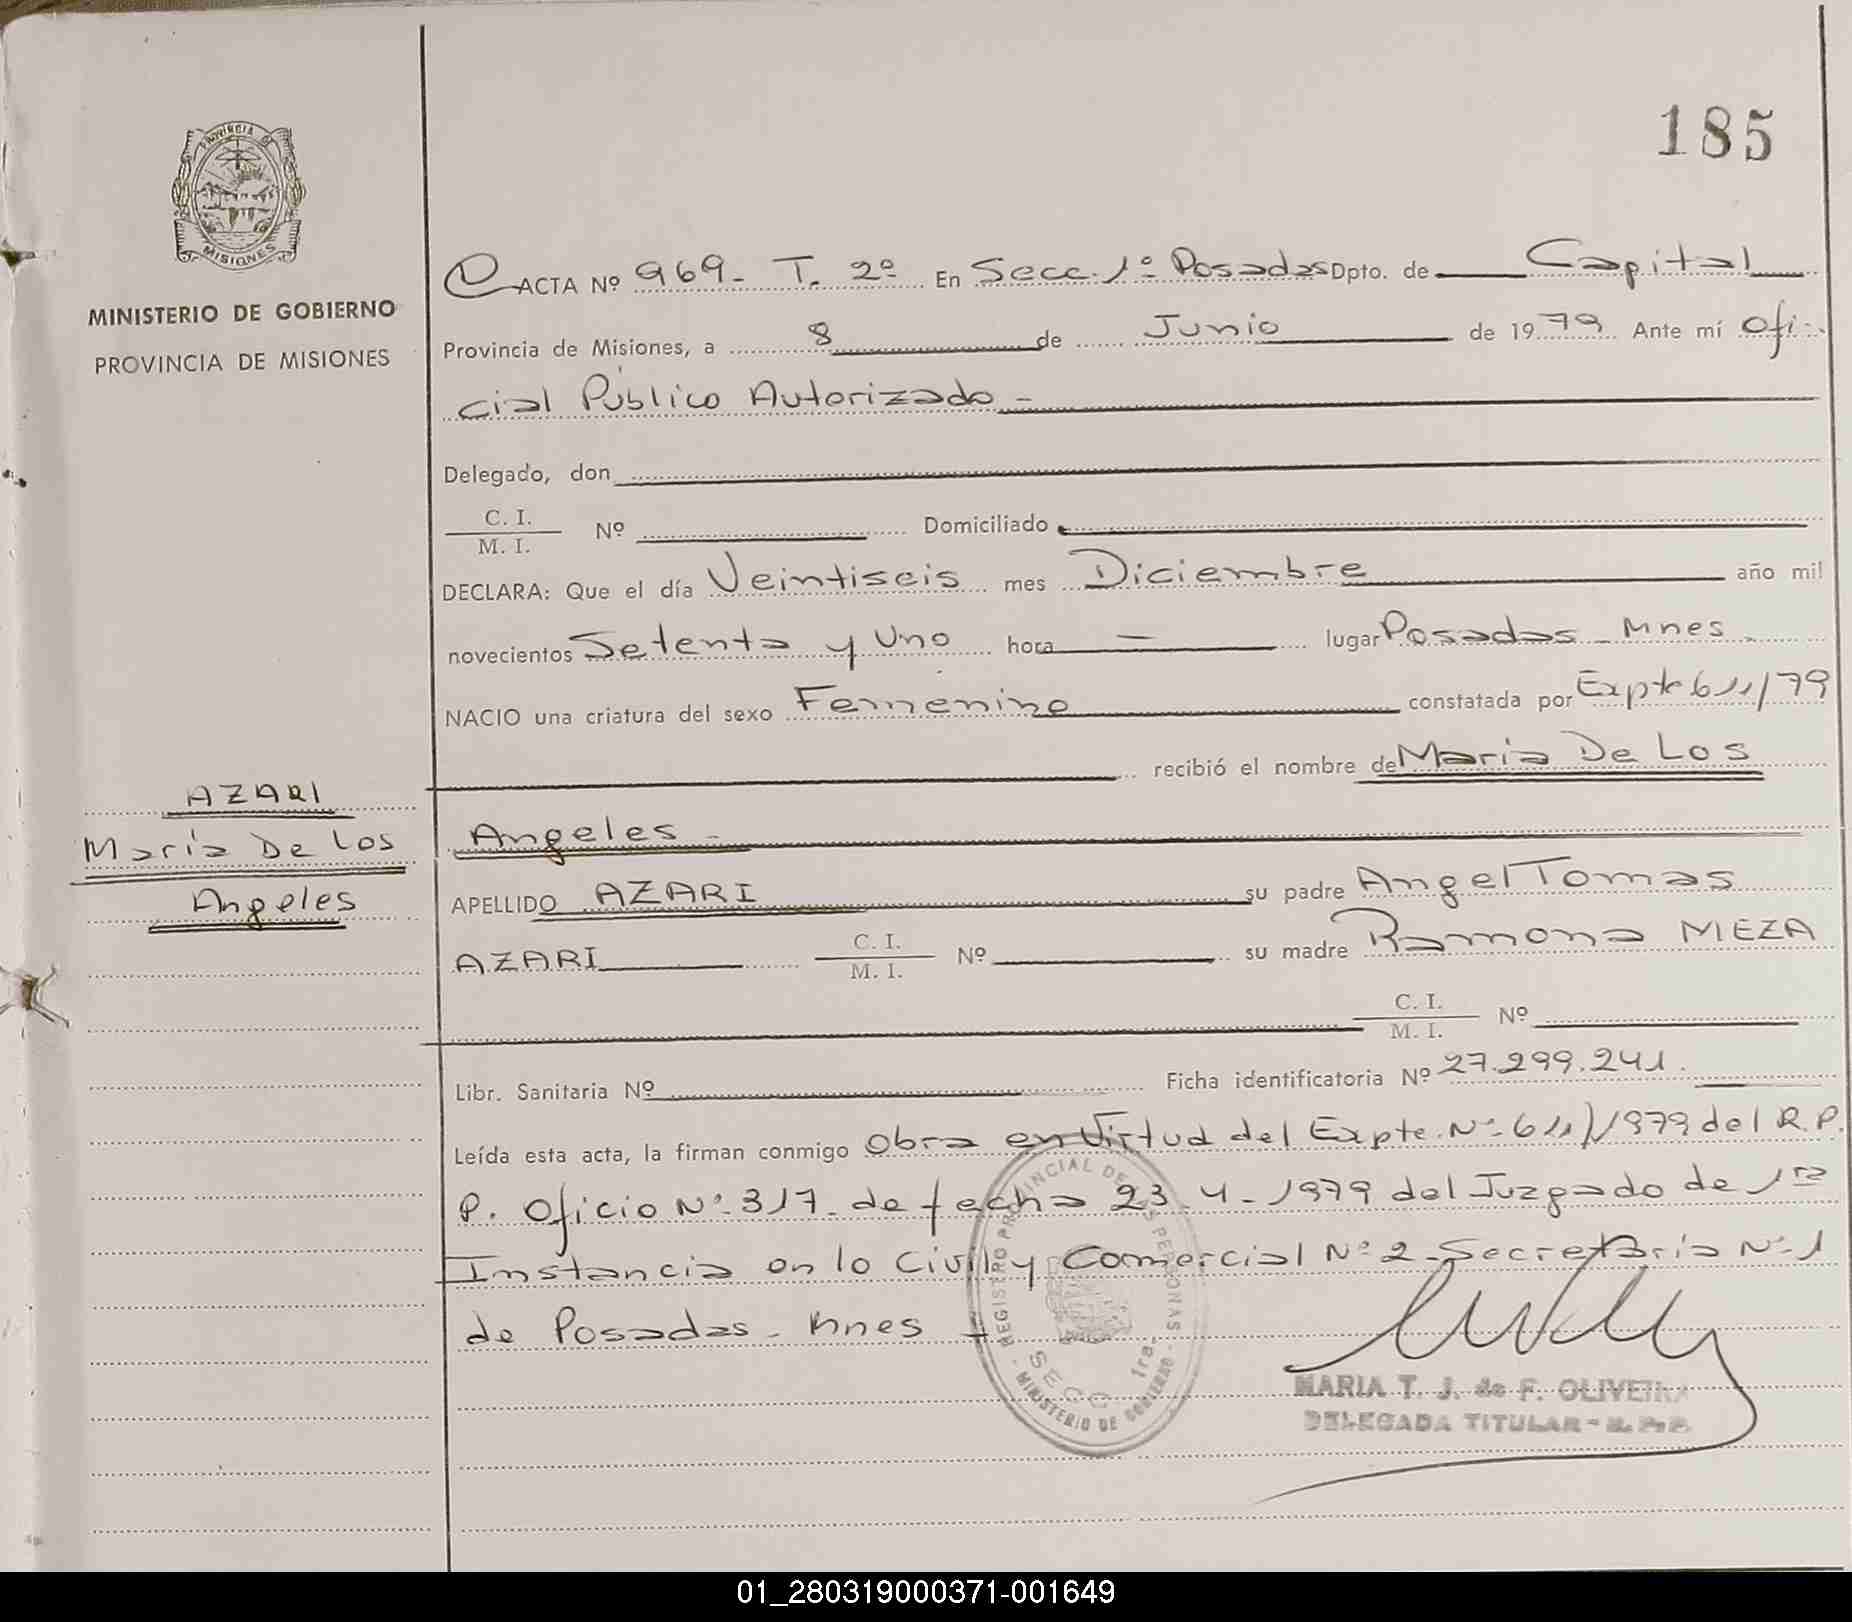 185
PROVINCIA DE
MISIONES
MINISTERIO DE GOBIERNO
PROVINCIA DE MISIONES
ACTA Nº 969 - T. 2º En Secc. 1º Posadas Dpto. de Capital
Provincia de Misiones, a 8 de Junio de 1979 Ante mí Ofi-
cial Público Autorizado -
Delegado, don
C. I. / M. I. Nº Domiciliado
DECLARA: Que el día Veintiseis mes Diciembre año mil
novecientos Setenta y Uno hora — lugar Posadas - Mnes -
NACIO una criatura del sexo Femenino constatada por Expte 611/79
recibió el nombre de Maria De Los
Angeles -
APELLIDO AZARI su padre Angel Tomas
AZARI C. I. / M. I. Nº su madre Ramona MEZA
C. I. / M. I. Nº
Libr. Sanitaria Nº Ficha identificatoria Nº 27.299.241.
Leída esta acta, la firman conmigo Obra en Virtud del Expte. Nº 611/1979 del R.P.
P. Oficio Nº 317 - de fecha 23 - 4 - 1979 del Juzgado de 1ra
Instancia en lo Civil y Comercial Nº 2 - Secretaria Nº 1
de Posadas - Mnes -
AZARI
María De Los
Angeles
REGISTRO PROVINCIAL DE LAS PERSONAS
SECC. 1ra.
- MINISTERIO DE GOBIERNO -
MARIA T. J. de F. OLIVEIRA
DELEGADA TITULAR - R. P. P.
01_280319000371-001649